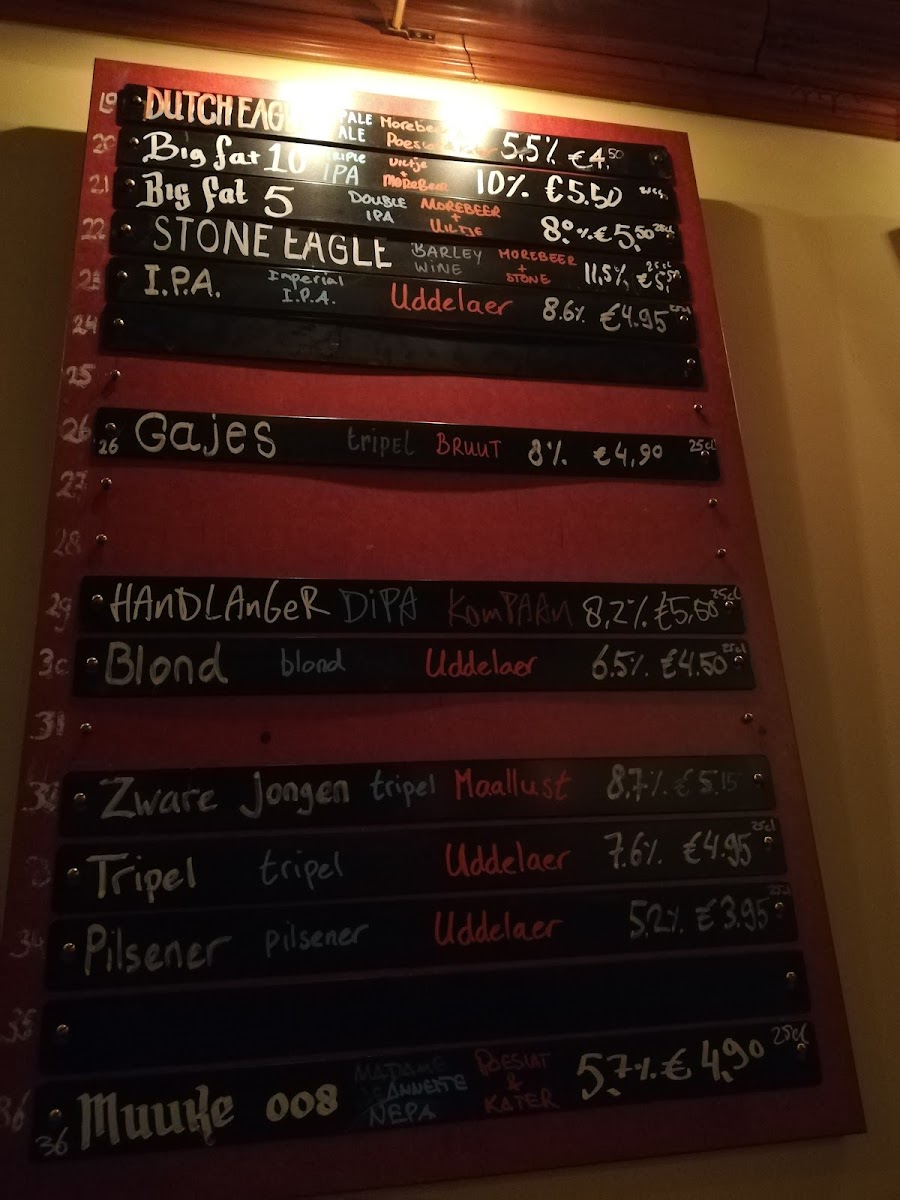 19 DUTCH EAGLE PALE ALE Morebeer Poesiat & Kater 5,5% €4,50
20 Big fat 10 TRIPLE IPA Uiltje + MOREBEER 10% €5.50 25cl
21 Big fat 5 DOUBLE IPA MOREBEER + UILTJE 8.0% €5,50 25cl
22 STONE EAGLE BARLEY WINE MOREBEER + STONE 11,5% €5,50 25cl
23 I.P.A. Imperial I.P.A. Uddelaer 8.6% €4.95 25cl
24
25
26 26 Gajes tripel BRUUT 8% €4,90 25cl
27
28
29 HAnDLAnGeR DiPA KomPAAn 8,2% €5,60 25cl
30 Blond blond Uddelaer 6.5% €4.50 25cl
31
32 Zware Jongen tripel Maallust 8,7% €5,15
Tripel tripel Uddelaer 7.6% €4.95 25cl
34 Pilsener pilsener Uddelaer 5.2% €3.95 25cl
35
36 36 Muuke 008 MADAME JEANNETTE NEPA POESIAT & KATER 5,7% € 4,90 25cl